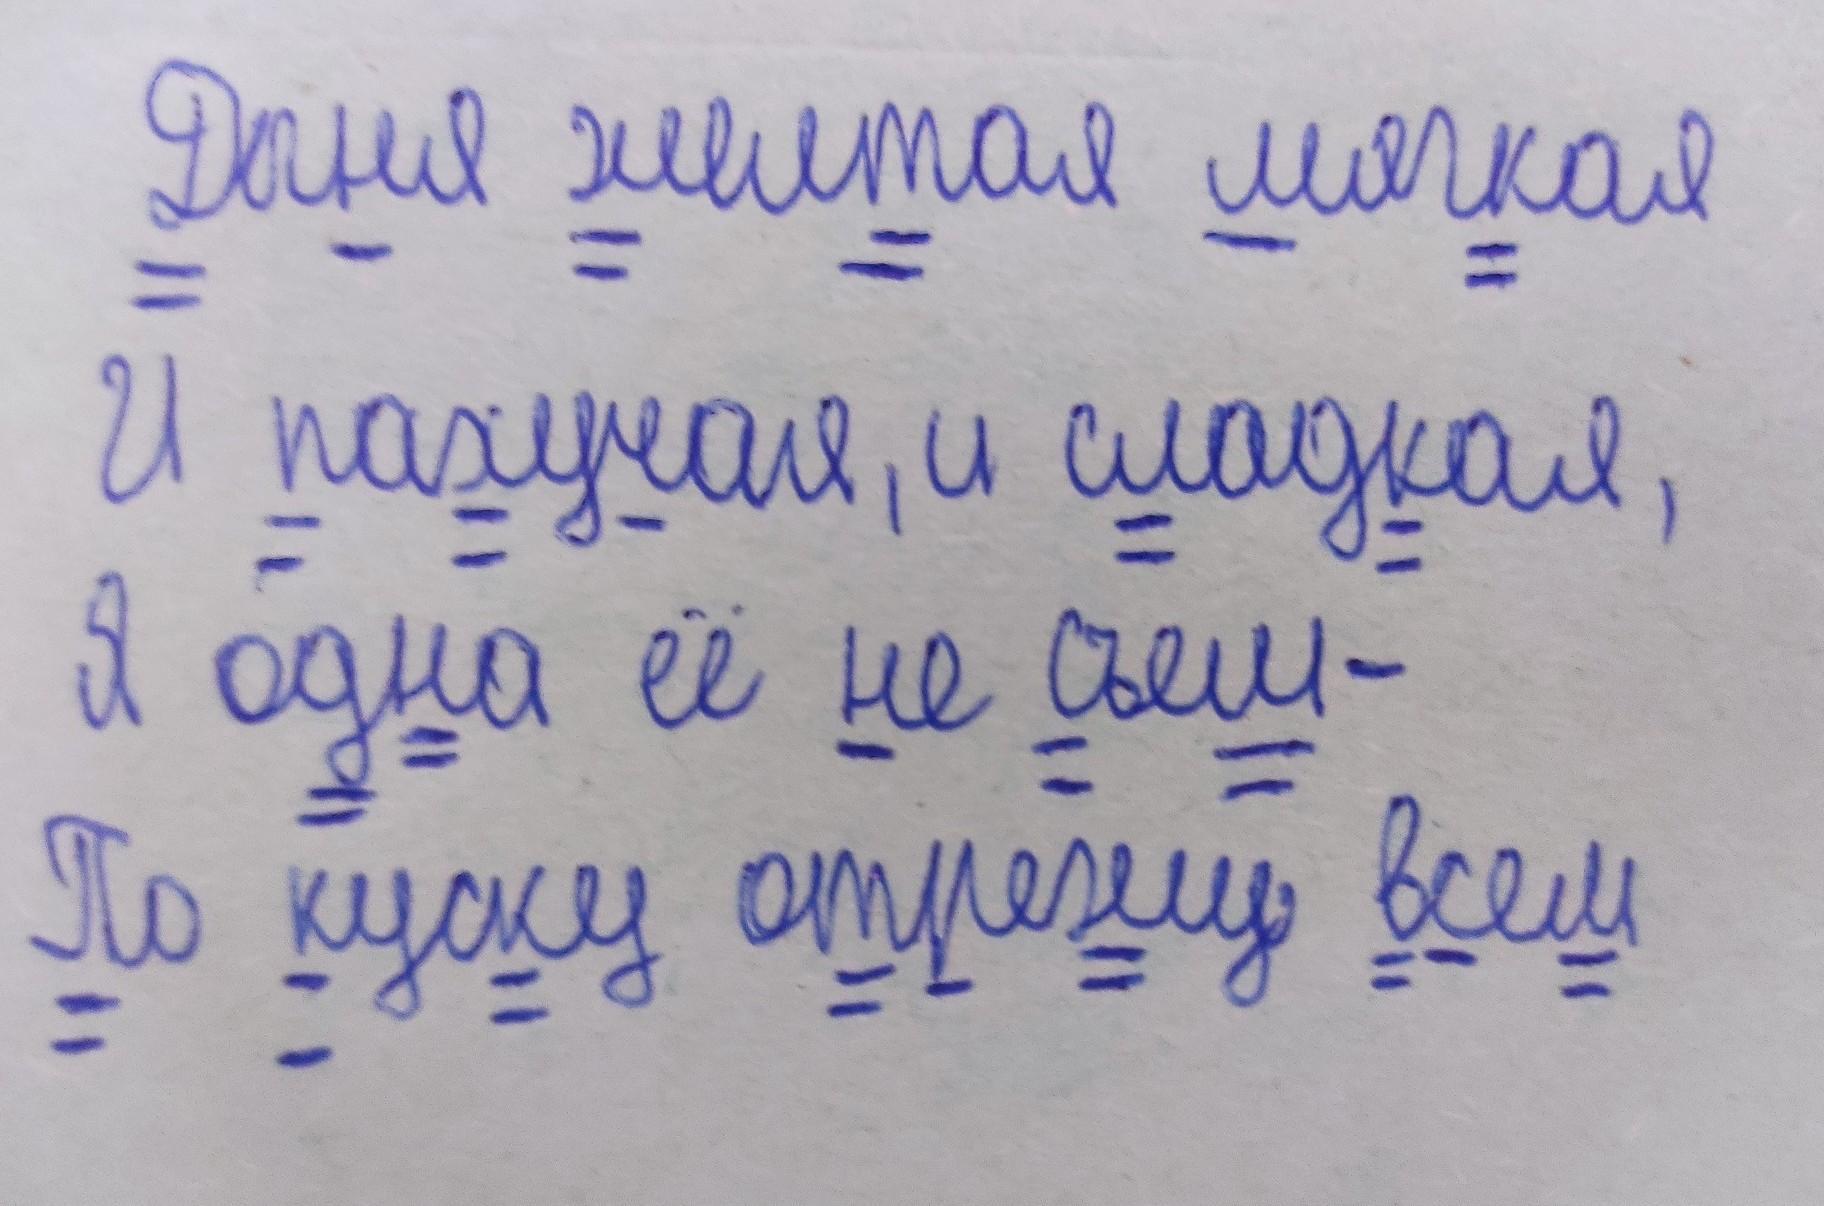 Даня желтая мягкая
И пахучая, и сладкая,
Я одна её не съем-
По куску отрежу всем